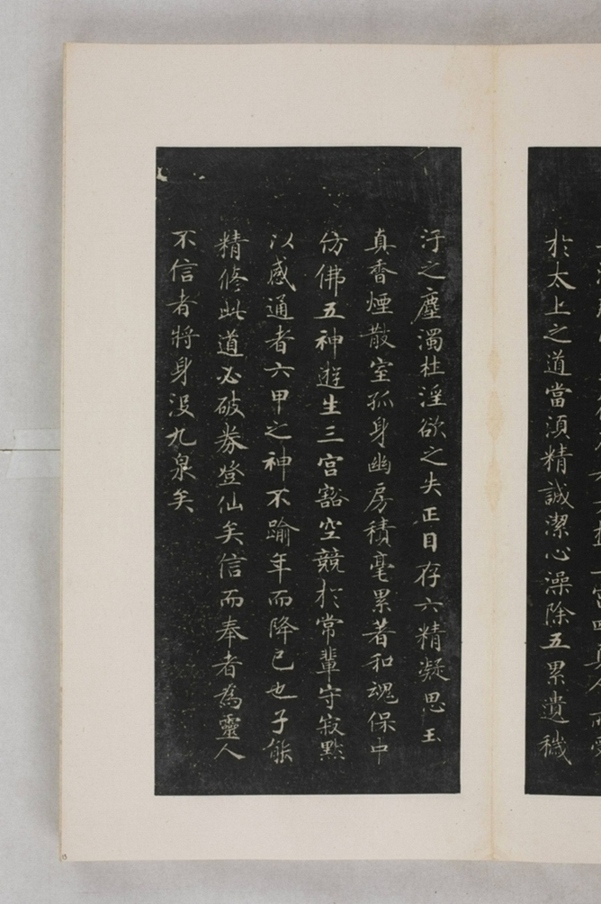 扵太上之道當湏精誠潔心澡除五累遺穢
汙之塵濁杜淫欲之失正目存六精凝思玉
真香煙散室孤身幽房積毫累著和魂保中
仿佛五神遊生三宮豁空競扵常輩守寂默
以感通者六甲之神不踰年而降已也子能
精修此道必破券登仙矣信而奉者為靈人
不信者將身沒九泉矣